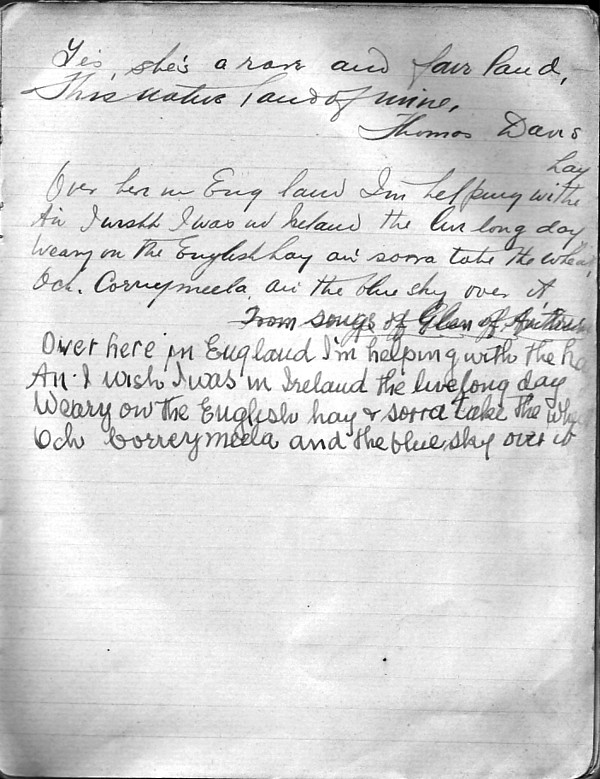 Yes, she's a rare and fair land,
This native land of mine.
Thomas Davis
hay
Over here in England I'm helping wi the
An I wishh I was in Ireland the live long day
Weary on the English hay an sorra take the wheat
Och. Corrymeela an the blue sky over it
From songs of Glen of Antrim
Over here in England I'm helping with the ha
An I wish I was in Ireland the livelong day
Weary on the English hay & sorra take the whe
Och Correymeela and the blue sky over it